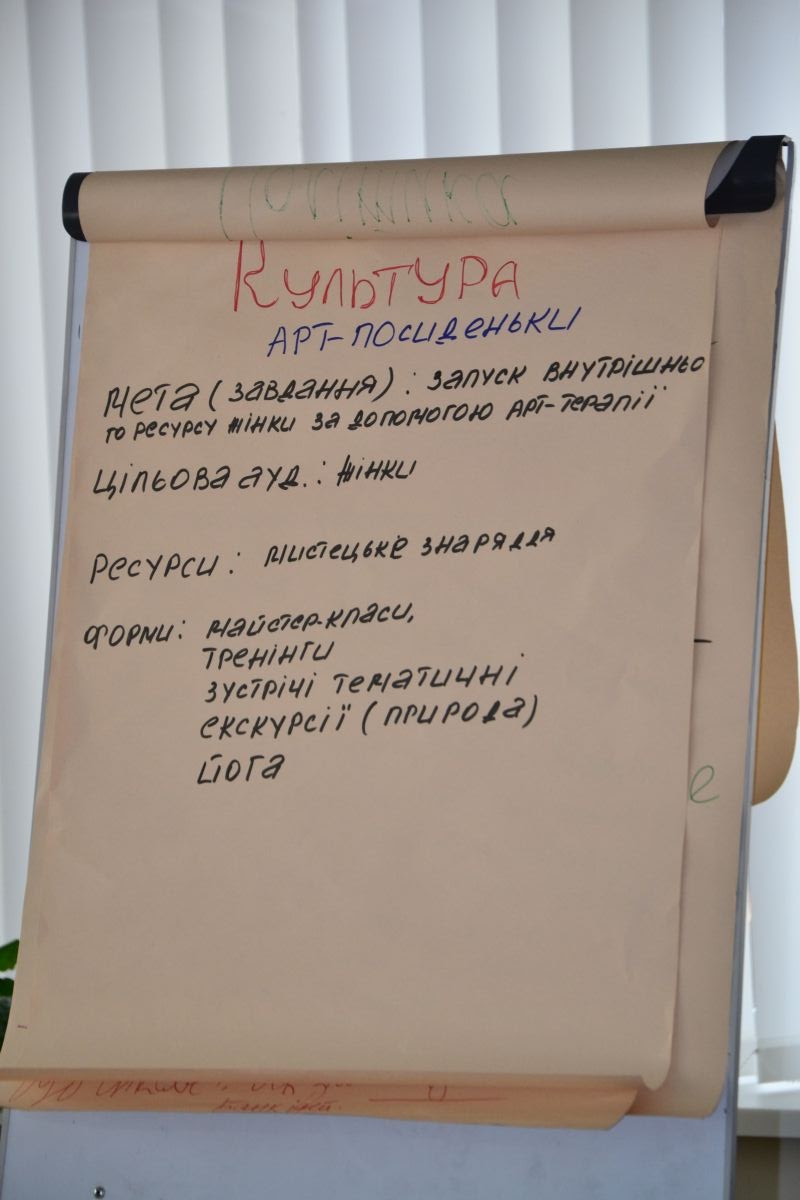 Культура
АРТ-посиденьки
Мета (завдання): запуск внутрішньо
го ресурсу жінки за допомогою арт-терапії
Цільова ауд.: жінки
Ресурси: мистецьке знаряддя
Форми: майстер-класи,
тренінги
зустрічі тематичні
екскурсії (природа)
йога
е